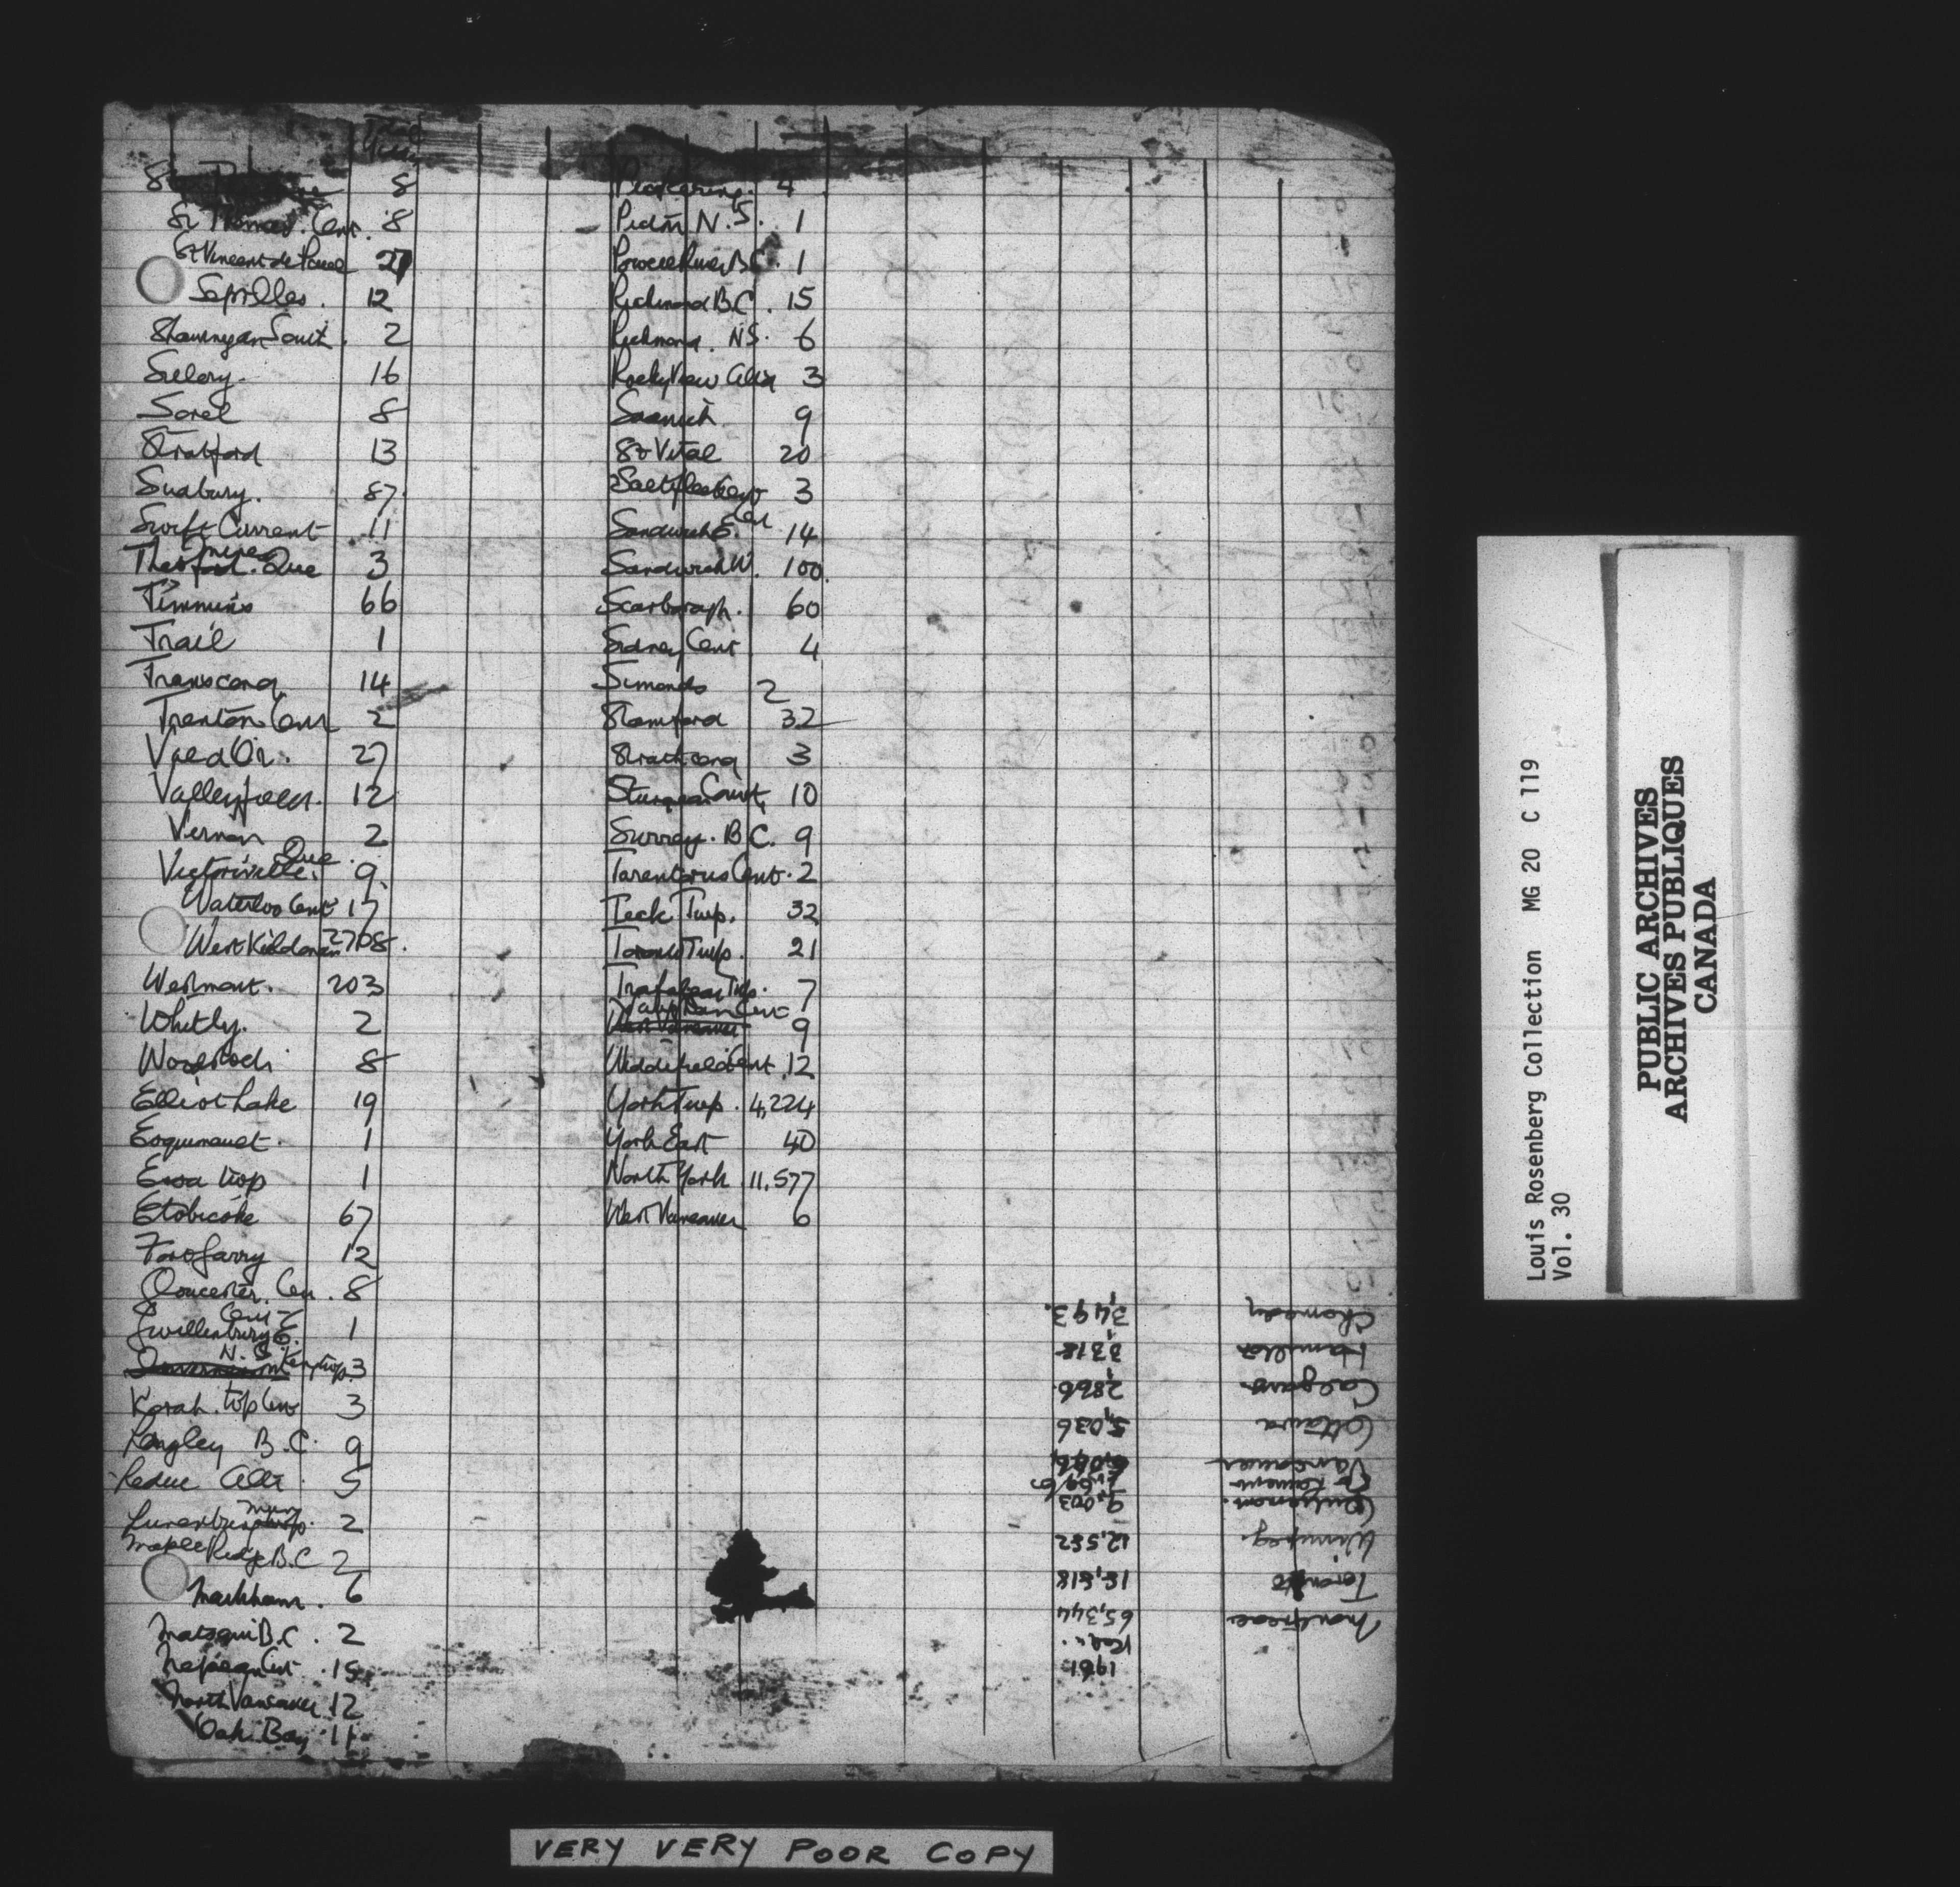 8
St Thomas. Cent. 8
St Vincent de Paul 27
Sept Iles. 12
Shawinigan South. 2
Sillery. 16
Sorel 8
Stratford 13
Sudbury. 87
Swift Current 11
Thetford mines. Que 3
Timmins 66
Trail 1
Transcona 14
Trenton Cent 2
Val d'Or. 27
Valleyfield. 12
Vernon 2
Victoriaville. Que. 9
Waterloo Cent 17
West Kildonan 2708.
Westmount. 203
Whitby. 2
Woodstock 8
Elliot Lake 19
Esquimault. 1
Essa twp 1
Etobicoke 67
Fort Garry 12
Gloucester. Cen. 8
Gwillimbury E. Cent 1
N.S. 3
Korah. twp Cent 3
Langley B.C. 9
Leduc Alta. 5
Lunenburg 2
Maple Ridge B.C 2
Markham. 6
Matsqui B.C. 2
Nepean Cent. 15
North Vancouver 12
Oak Bay 11
Pickering. 4
Pictou N.S. 1
Powell River B.C. 1
Richmond B.C. 15
Richmond. NS. 6
Rocky View Alta 3
Saanich 9
St Vital 20
Saltfleet Cent 3
Sandwich E. Cen 14
Sandwich W. 100
Scarborough. 60
Sidney Cent 4
Simonds 2
Stamford 32
Strathcona 3
Sturgeon Count. 10
Surrey. B.C. 9
Tarentorus Cent. 2
Teck Twp. 32
Toronto Twp. 21
Trafalgar Twp. 7
9
Widdifield Cent 12
York Twp. 4,224
York East 40
North York 11,577
West Vancouver 6
1961
Montreal 65,344
Toronto 15,818
Winnipeg. 12,582
Outremont. 9,003
St Laurent
Vancouver
Ottawa 5,036
Calgary. 2,866.
Hamilton 3318
Chomedy 3,493.
Louis Rosenberg Collection MG 20 C 119
Vol. 30
PUBLIC ARCHIVES
ARCHIVES PUBLIQUES
CANADA
VERY VERY POOR COPY